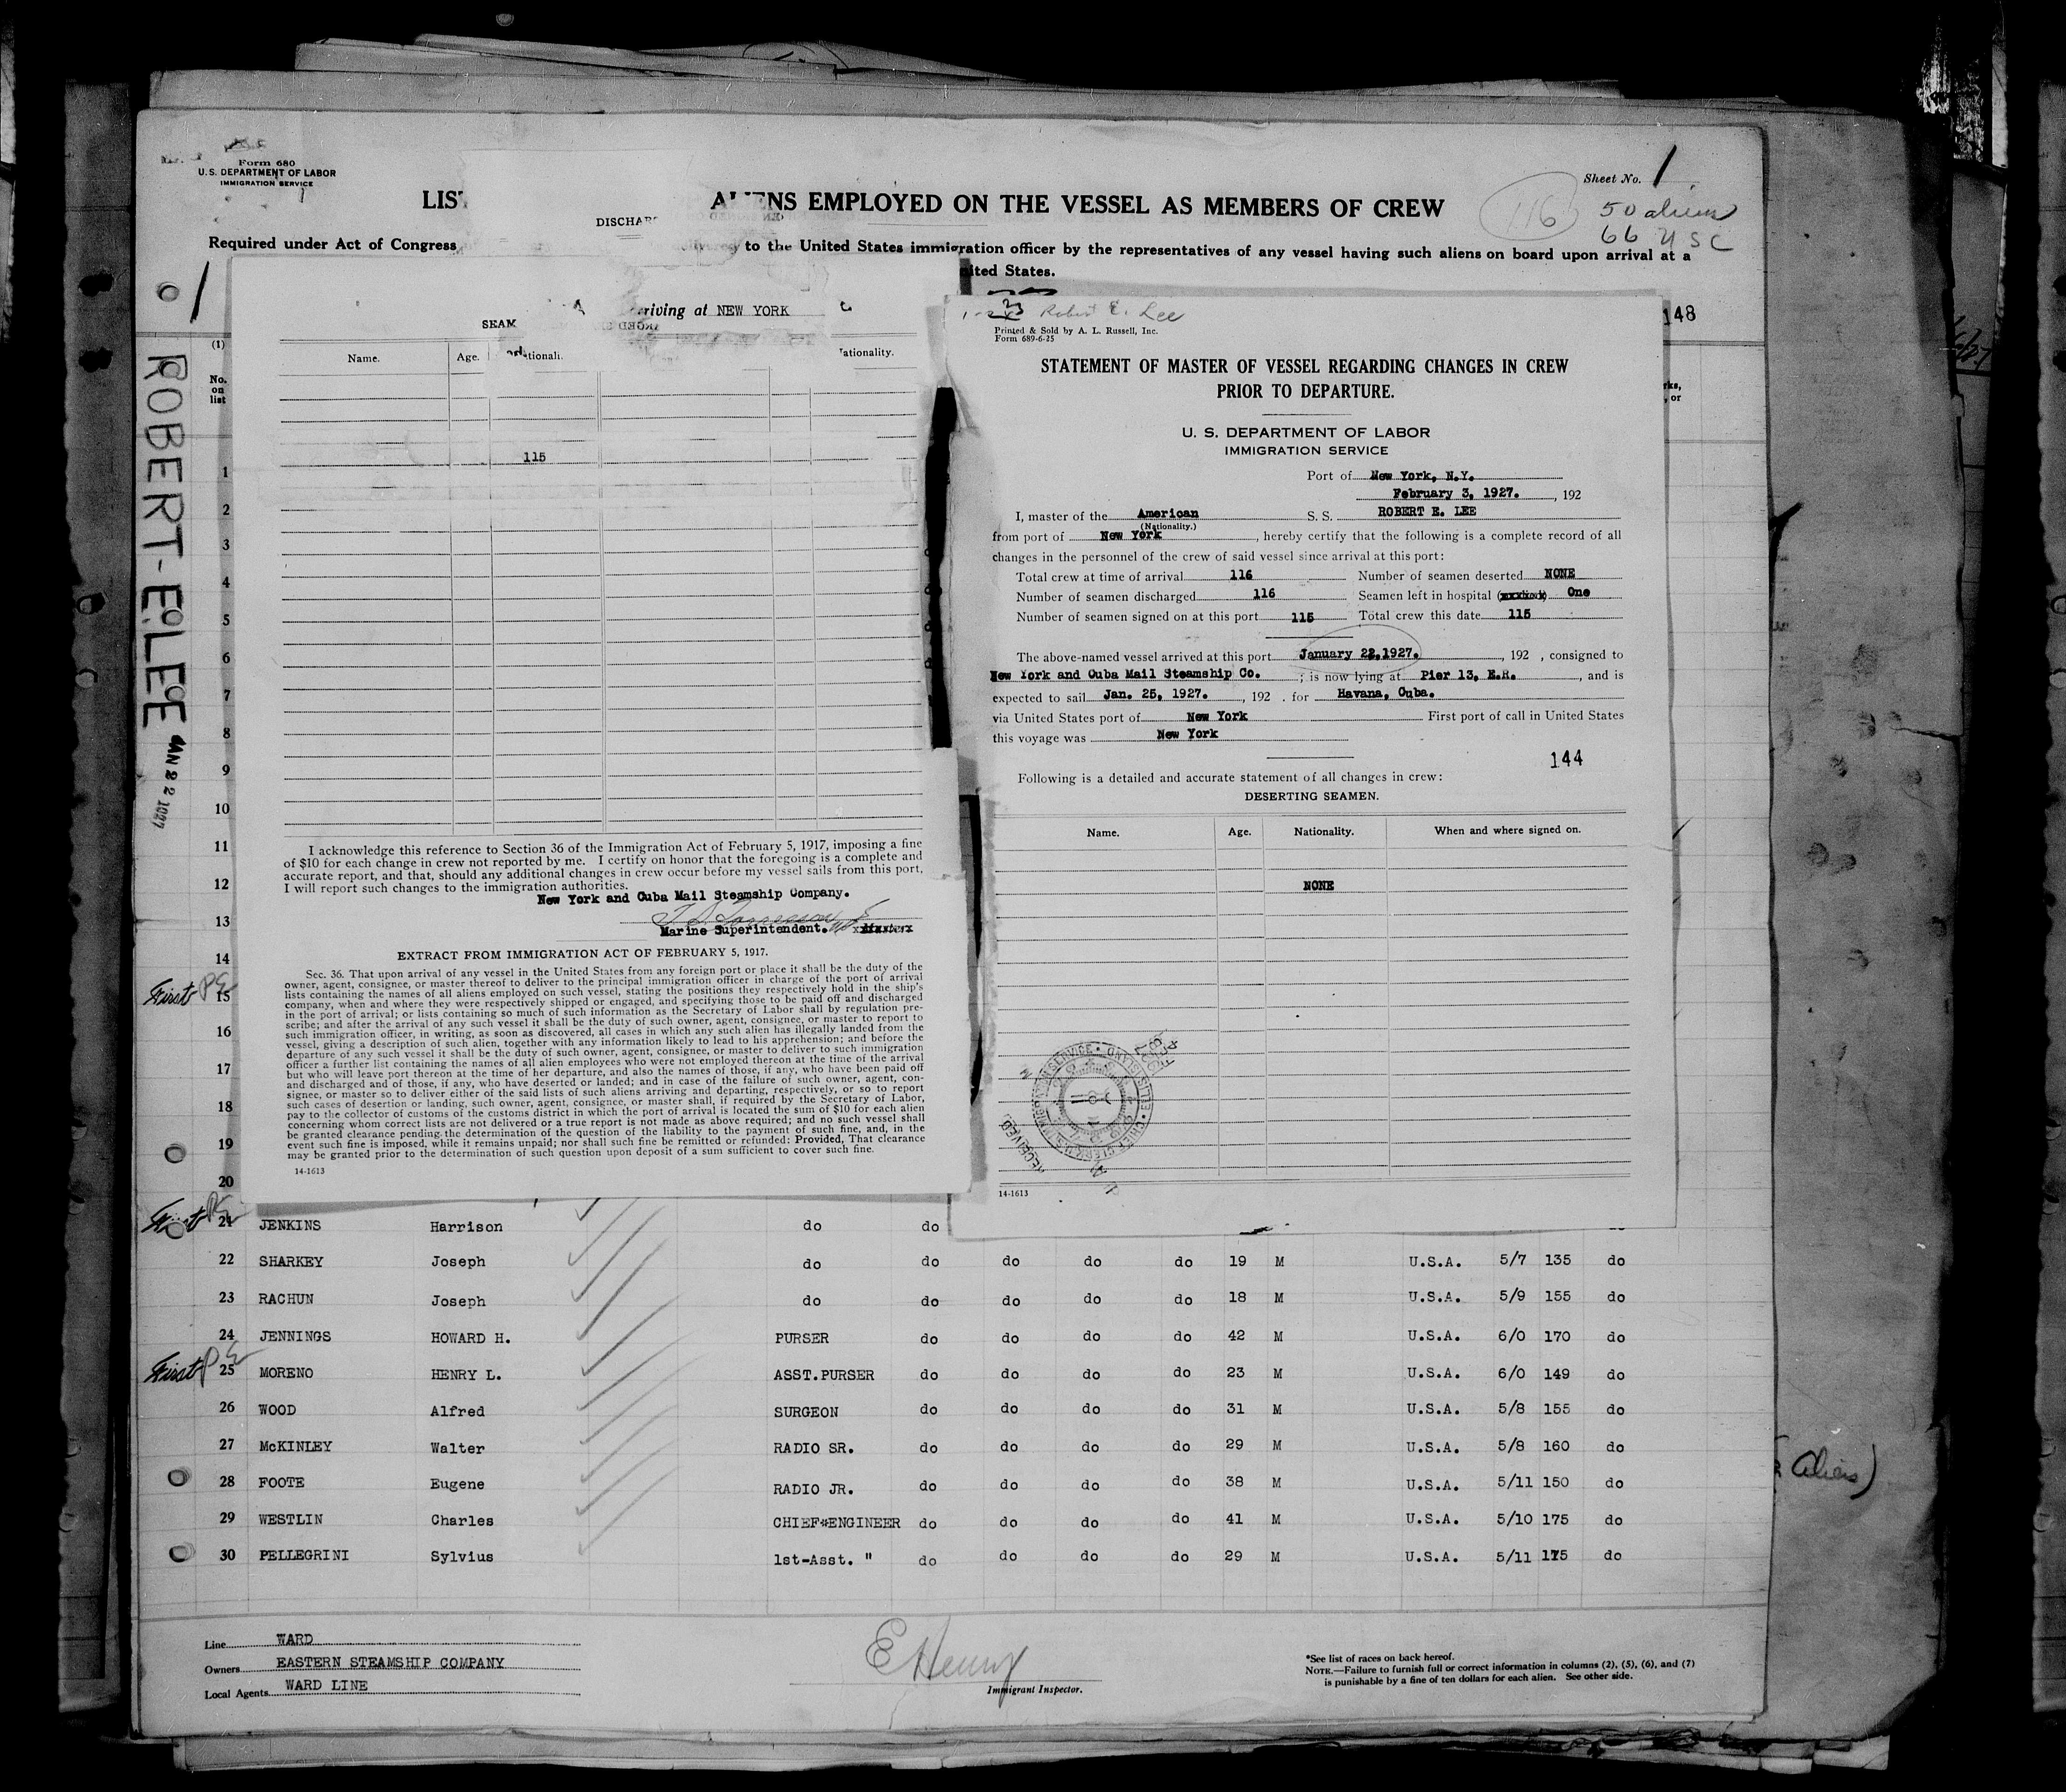 Form 680
U.S. DEPARTMENT OF LABOR
IMMIGRATION SERVICE
Sheet No. 1
116
50 aliens
66 USC
ENS EMPLOYED ON THE VESSEL AS MEMBERS OF CREW
Required under Act of Congress
to the United States immigration officer by the representatives of any vessel having such aliens on board upon arrival at a
ited States.
148
ROBERT-E-LEE
riving at NEW YORK
Name. Age.
115
I acknowledge this reference to Section 36 of the Immigration Act of February 5, 1917, imposing a fine
of $10 for each change in crew not reported by me. I certify on honor that the foregoing is a complete and
accurate report, and that, should any additional changes in crew occur before my vessel sails from this port,
I will report such changes to the immigration authorities.
New York and Cuba Mail Steamship Company.
Marine Superintendent.
EXTRACT FROM IMMIGRATION ACT OF FEBRUARY 5, 1917.
Sec. 36. That upon arrival of any vessel in the United States from any foreign port or place it shall be the duty of the
owner, agent, consignee, or master thereof to deliver to the principal immigration officer in charge of the port of arrival
lists containing the names of all aliens employed on such vessel, stating the positions they respectively hold in the ship's
company, when and where they were respectively shipped or engaged, and specifying those to be paid off and discharged
in the port of arrival; or lists containing so much of such information as the Secretary of Labor shall by regulation pre-
scribe; and after the arrival of any such vessel it shall be the duty of such owner, agent, consignee, or master to report to
such immigration officer, in writing, as soon as discovered, all cases in which any such alien has illegally landed from the
vessel, giving a description of such alien, together with any information likely to lead to his apprehension; and before the
departure of any such vessel it shall be the duty of such owner, agent, consignee, or master to deliver to such immigration
officer a further list containing the names of all alien employees who were not employed thereon at the time of the arrival
but who will leave port thereon at the time of her departure, and also the names of those, if any, who have been paid off
and discharged and of those, if any, who have deserted or landed; and in case of the failure of such owner, agent, con-
signee, or master so to deliver either of the said lists of such aliens arriving and departing, respectively, or so to report
such cases of desertion or landing, such owner, agent, consignee, or master shall, if required by the Secretary of Labor,
pay to the collector of customs of the customs district in which the port of arrival is located the sum of $10 for each alien
concerning whom correct lists are not delivered or a true report is not made as above required; and no such vessel shall
be granted clearance pending the determination of the question of the liability to the payment of such fine, and, in the
event such fine is imposed, while it remains unpaid; nor shall such fine be remitted or refunded: Provided, That clearance
may be granted prior to the determination of such question upon deposit of a sum sufficient to cover such fine.
14-1613
Robert E. Lee
Printed & Sold by A. L. Russell, Inc.
Form 689-6-25
STATEMENT OF MASTER OF VESSEL REGARDING CHANGES IN CREW
PRIOR TO DEPARTURE.
U. S. DEPARTMENT OF LABOR
IMMIGRATION SERVICE
Port of New York, N.Y.
February 3, 1927. , 192
I, master of the American S. S. ROBERT E. LEE
(Nationality.)
from port of New York , hereby certify that the following is a complete record of all
changes in the personnel of the crew of said vessel since arrival at this port:
Total crew at time of arrival 116 Number of seamen deserted NONE
Number of seamen discharged 116 Seamen left in hospital One
Number of seamen signed on at this port 115 Total crew this date 115
The above-named vessel arrived at this port January 22,1927. , 192 , consigned to
New York and Cuba Mail Steamship Co. ; is now lying at Pier 13, E.R. , and is
expected to sail Jan. 25, 1927. , 192 . for Havana, Cuba.
via United States port of New York First port of call in United States
this voyage was New York
144
Following is a detailed and accurate statement of all changes in crew:
DESERTING SEAMEN.
Name. Age. Nationality. When and where signed on.
NONE
14-1613
(1)
No.
on
list
1
2
3
4
5
6
7
8
9
10
11
12
13
14
First 15
16
17
18
19
20
First 21 JENKINS Harrison do do
22 SHARKEY Joseph do do do do do 19 M U.S.A. 5/7 135 do
23 RACHUN Joseph do do do do do 18 M U.S.A. 5/9 155 do
24 JENNINGS HOWARD H. PURSER do do do do 42 M U.S.A. 6/0 170 do
First 25 MORENO HENRY L. ASST.PURSER do do do do 23 M U.S.A. 6/0 149 do
26 WOOD Alfred SURGEON do do do do 31 M U.S.A. 5/8 155 do
27 McKINLEY Walter RADIO SR. do do do do 29 M U.S.A. 5/8 160 do
28 FOOTE Eugene RADIO JR. do do do do 38 M U.S.A. 5/11 150 do
29 WESTLIN Charles CHIEF ENGINEER do do do do 41 M U.S.A. 5/10 175 do
30 PELLEGRINI Sylvius 1st-Asst. " do do do do 29 M U.S.A. 5/11 175 do
Line WARD
Owners EASTERN STEAMSHIP COMPANY
Local Agents WARD LINE
E Henry
Immigrant Inspector.
*See list of races on back hereof.
NOTE.—Failure to furnish full or correct information in columns (2), (5), (6), and (7)
is punishable by a fine of ten dollars for each alien. See other side.
Aliens)